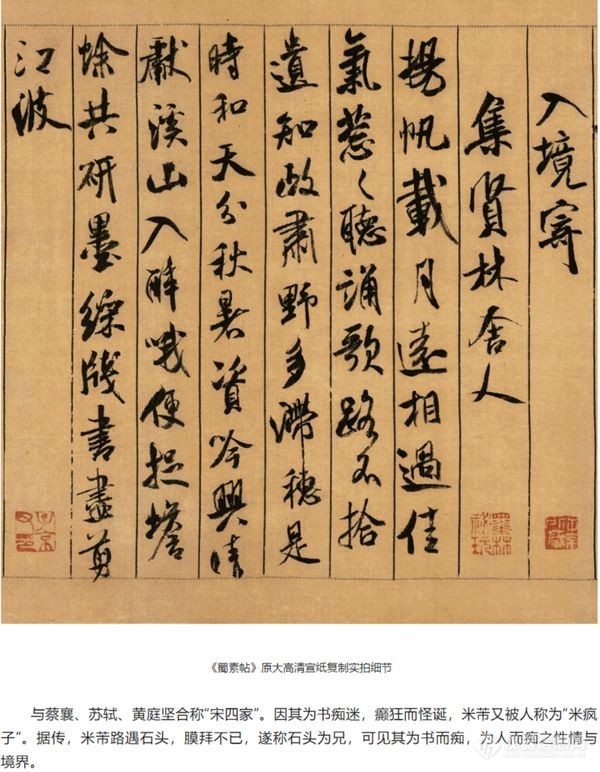 入境寄
集賢林舍人
揚帆載月遠相過佳
氣葱〻聽誦歌路不拾
遺知政肅野多滯穗是
時和天分秋暑資吟興晴
獻溪山入醉哦便捉蟾
蜍共研墨綵牋書盡剪
江波
墨林秘玩
《蜀素帖》原大高清宣纸复制实拍细节
与蔡襄、苏轼、黄庭坚合称“宋四家”。因其为书痴迷，癫狂而怪诞，米芾又被人称为“米疯
子”。据传，米芾路遇石头，膜拜不已，遂称石头为兄，可见其为书而痴，为人而痴之性情与
境界。